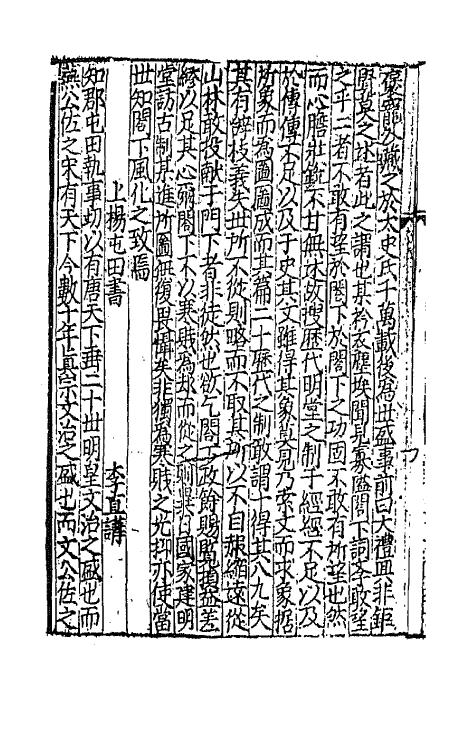 褒寵必熾之於太史氏千萬載後為世盛事前曰大禮豈非鉅
賢莫之采者此之謂也某衿衣塵埃聞見寡隘閣下詞李敢望
之乎二者不敢有望於閣下於閣下之功固不敢有所望也然
而心膽壯銳不甘無采故搜歷代明堂之制于經經不足以及
於傳傳不足以及于史其文雖得其象莫見乃索文而求象據
所象而為圖圖成而其篇二十歷代之制敢謂十得其八九矣
其有辭枝義失世所不從則略而不取其所以不自報縮遠從
山林敢投献于門下者非徒然也欲乞閣下政餘賜覽損益差
繆以足其心爾閣下不以寒賤為却而從之則異日國家建明
堂訪古制某進所圖無復畏懾矣非獨為寒賤之光抑亦使當
世知閣下風化之致焉
上楊屯田書 李直講
知郡屯田執事切以有唐天下垂二十世明皇文治之盛也而
燕公佐之宋有天下今數十年真宗文治之盛也而文公佐之